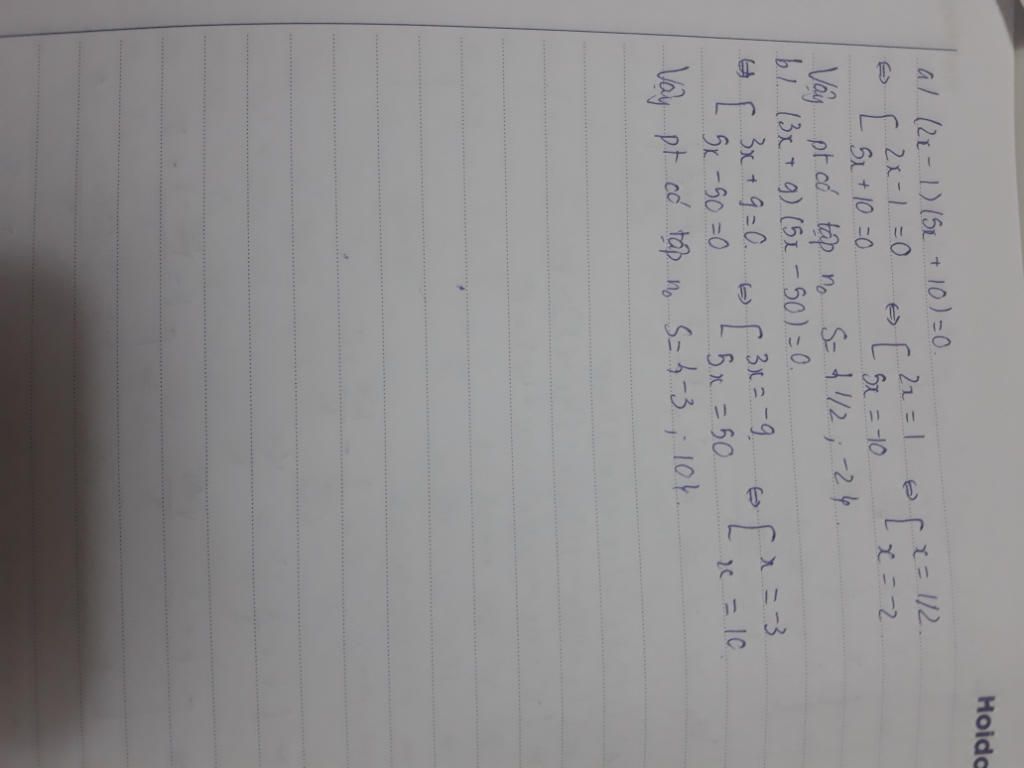 a/ (2x - 1)(5x + 10) = 0.
⇔ [ 2x - 1 = 0 ⇔ [ 2x = 1 ⇔ [ x = 1/2.
5x + 10 = 0 5x = -10 x = -2
Vậy pt có tập no S = {1/2 ; -2}.
b/. (3x + 9)(5x - 50) = 0.
⇔ [ 3x + 9 = 0. ⇔ [ 3x = -9. ⇔ [ x = -3
5x - 50 = 0 5x = 50 x = 10.
Vậy pt có tập no S = {-3 ; 10}.
Hoidc